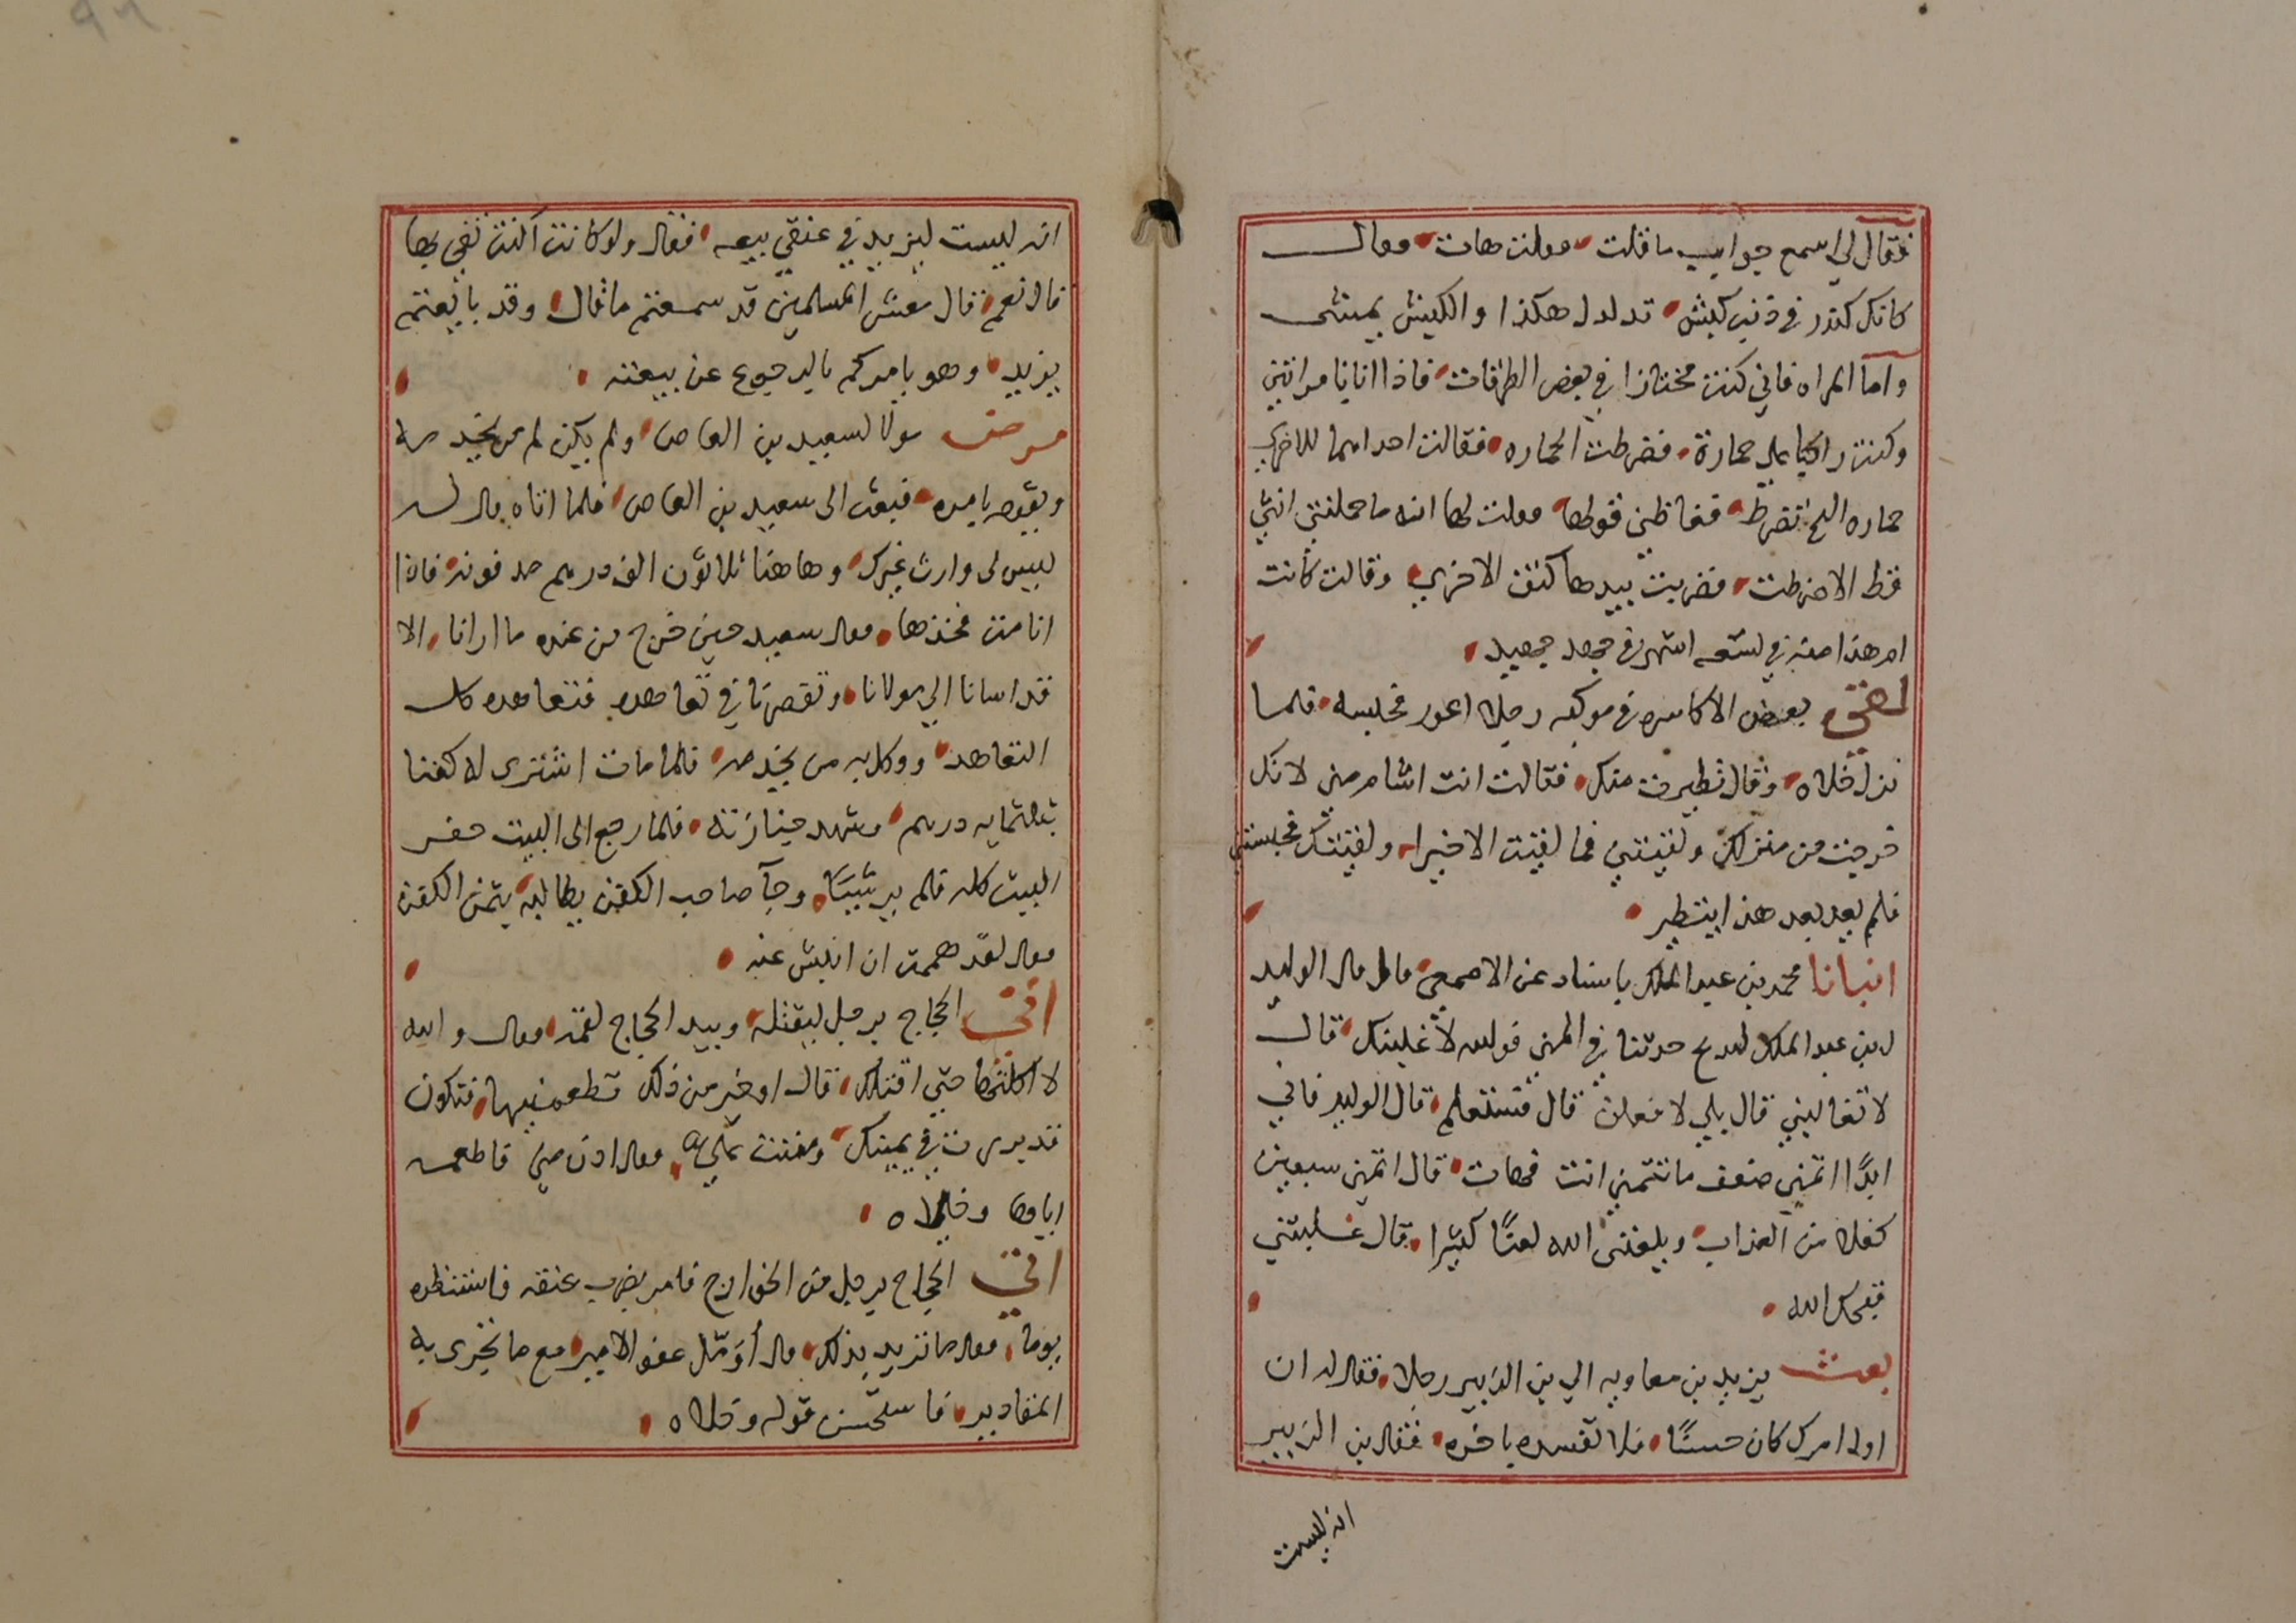 فقال لي اسمع جوابي ما قلت وقلت هات وقال
كانك كندر في ذنب كبش تدلدل هكذا والكبش يمشى
واما المراه فاني كنت مجتازا في بعض الطرقات فاذا انا بامراتين
وكنت راكبا على حمارة فضرطت الحماره فقالت احداهما للاخرى
حماره الشيخ تضرط فغاظني قولها وقلت لها انه ما حملتني انثى
قط الا ضرطت فضربت بيدها كتف الاخرى وقالت كانت
ام هذا منه في تسعه اشهر في جهد جهيد
لقي بعض الاكاسره في موكبه رجلا اعور فحبسه فلما
نزل خلاه وقال تطيرت منك فقالت انت اشام مني لانك
خرجت من منزلك ولقيتني فما لقيت الا خيرا ولقيتك فحبستني
فلم يعد بعد هذا يتطير
انبانا محمد بن عبد الملك باسناد عن الاصمعي قال قال الوليد
بن عبد الملك لبديح خذ بنا في المنى فوالله لاغلبنك قال
لا تغالبني قال بلى لافعلن قال فستعلم قال الوليد فاني
ابدًا اتمنى ضعف ما تتمنى انت فهات قال اتمنى سبعين
كفلا من العذاب ويلعنني الله لعنًا كثيرا قال غلبتني
قبحك الله
بعث يزيد بن معاويه الى بن الزبير رجلا فقال له ان
اول امرك كان حسنًا فلا تفسده باخره فقال بن الزبير
انه ليست
انه ليست ليزيد في عنقي بيعه فقال ولو كانت اكنت تفي بها
قال نعم قال معشر المسلمين قد سمعتم ما قال وقد بايعتم
يزيد وهو يامركم بالرجوع عن بيعته
مرض مولا لسعيد بن العاص ولم يكن له من يخدمه
ويقوم بامره فبعث الى سعيد بن العاص فلما اتاه قال له
ليس لى وارث غيرك وهاهنا ثلاثون الف درهم مدفونه فاذا
انا مت فخذها وقال سعيد حين خرج من عنده ما ارانا الا
قد اسانا الى مولانا وتقصرنا في تعاهده فتعاهده كل
التعاهد ووكل به من يخدمه فلما مات اشترى له كفنا
بثلثمايه درهم وشهد جنازته فلما رجع الى البيت حفر
البيت كله فلم ير شيئا وجآ صاحب الكفن يطالبه بثمن الكفن
وقال لقد هممت ان انبش عنه
اتى الحجاج برجل ليقتله وبيد الحجاج لقمه وقال والله
لا اكلتها حتى اقتلك قال او خير من ذلك تطعمنيها فتكون
قد بررت في يمينك ومننت علي وقال ادن مني فاطعمه
اياها وخلاه
اتى الحجاج برجل من الخوارج فامر بضرب عنقه فاستنظره
يوما وقال ما تريد بذلك قال أؤمل عفو الامير مع ما تجرى به
المقادير فاستحسن قوله وخلاه